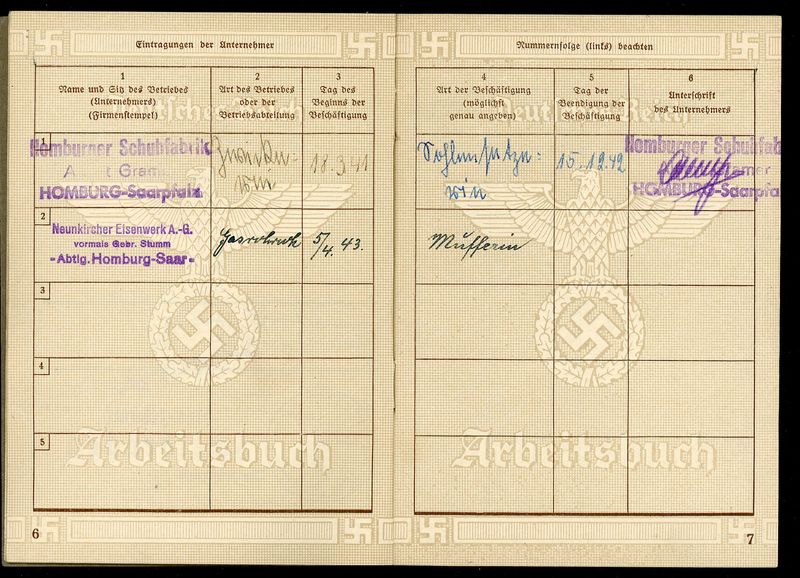 Eintragungen der Unternehmer
1
Name und Sitz des Betriebes
(Unternehmers)
(Firmenstempel)
2
Art des Betriebes
oder der
Betriebsabteilung
3
Tag des
Beginns der
Beschäftigung
1
Homburger Schuhfabrik
HOMBURG-Saarpfalz
18.3.41
2
Neunkircher Eisenwerk A.-G.
vormals Gebr. Stumm
-Abtlg. Homburg-Saar-
5/4. 43.
3
4
5
Arbeitsbuch
6
Nummernfolge (links) beachten
4
Art der Beschäftigung
(möglichst
genau angeben)
5
Tag der
Beendigung der
Beschäftigung
6
Unterschrift
des Unternehmers
15.12.42
Homburger Schuhfab
HOMBURG-Saarpfa
Mufferin
Deutsches Reich
Arbeitsbuch
7